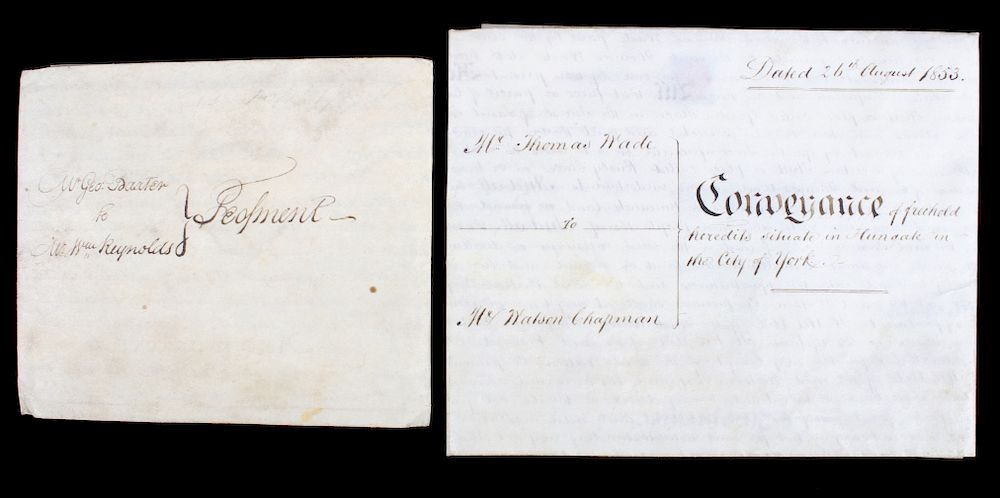 Mr Geo: Baxter
to
Mr. Wm Reynolds
Feofment
Dated 26th August 1853.
Mr Thomas Wade
to
Mr Watson Chapman
Conveyance of freehold
heredits situate in Hungate in
the City of York.